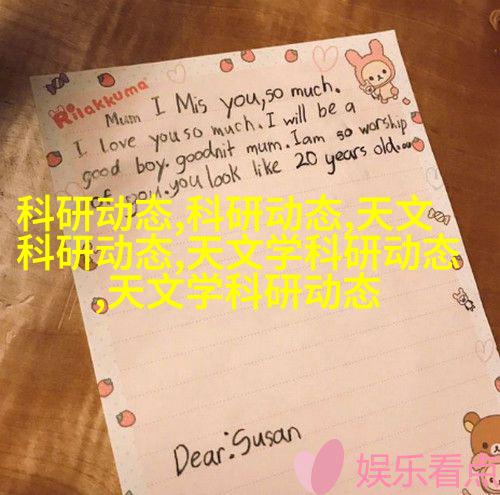 Rilakkuma
Mum I Mis you,so much.
I love you so much. I will be a
good boy. goodnit mum. I am so worship
of you. you look like 20 years old...
科研动态,科研动态,天文
科研动态,天文学科研动态
,天文学科研动态
Dear:Susan
娱乐看点